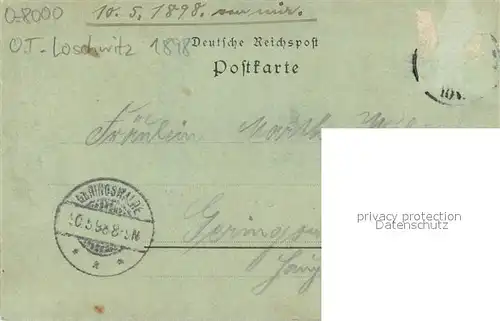 O-8000
10. 5. 1898.
O.T. Loschwitz 1898
Deutsche Reichspost
Postkarte
Fräulein Marth
GERINGSWALDE
10.5.98 8-9N
Gerings
privacy protection
Datenschutz